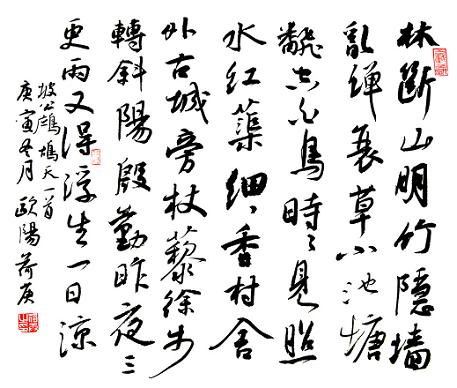 林斷山明竹隱墙
亂蟬衰草小池塘
翻空白鳥時〻見照
水紅蕖細〻香村舍
外古城旁杖藜徐步
轉斜陽殷勤昨夜三
更雨又得浮生一日涼
坡公鷓鴣天一首
庚寅冬月 歐陽荷庚